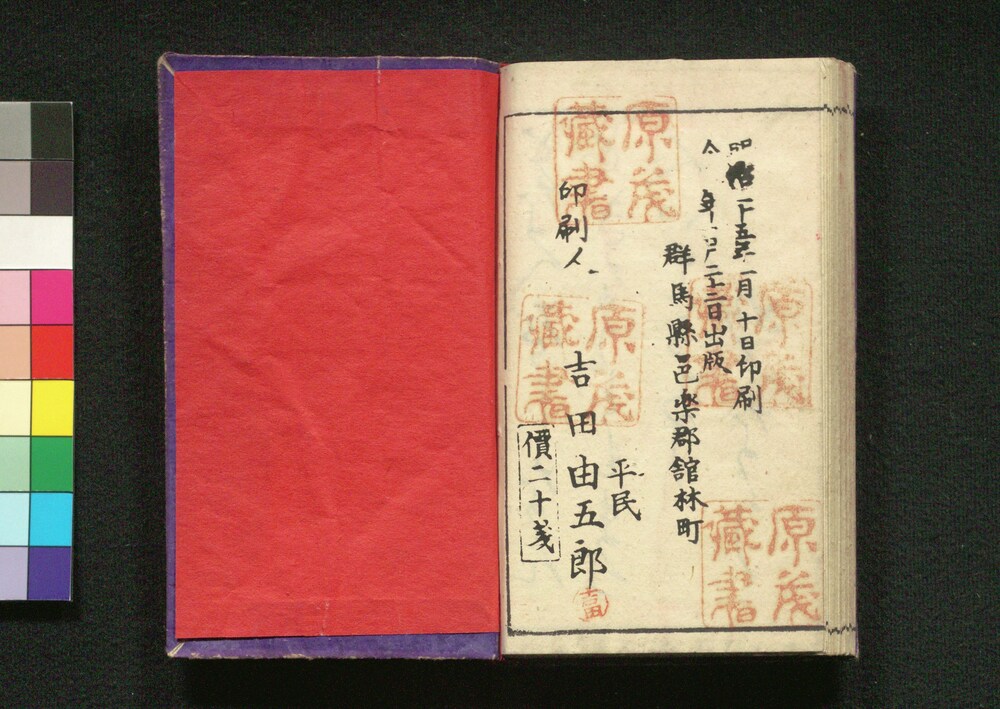 明治二十五年一月十日印刷
仝年一月二十三日出版
群馬縣邑楽郡舘林町
平民
印刷人 吉田由五郎
價二十戔
原茂
藏書
原茂
藏書
原茂
藏書
原茂
藏書